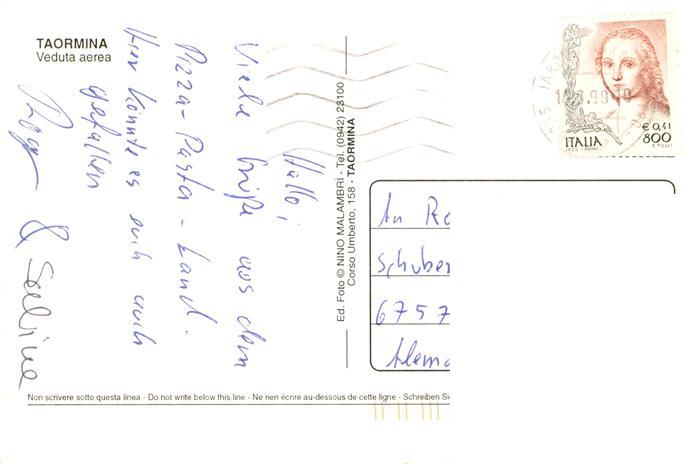 TAORMINA
Veduta aerea
Hallo,
Viele Grüße aus dem
Pizza-Pasta-Land.
Hier könnte es euch auch
gefallen
&
Ed. Foto © NINO MALAMBRÌ - Tel. (0942) 23100
Corso Umberto, 158 - TAORMINA
ITALIA
€ 0,41
800
An
Schuber
6757
Alema
Non scrivere sotto questa linea - Do not write below this line - Ne rien écrire au-dessous de cette ligne - Schreiben Si